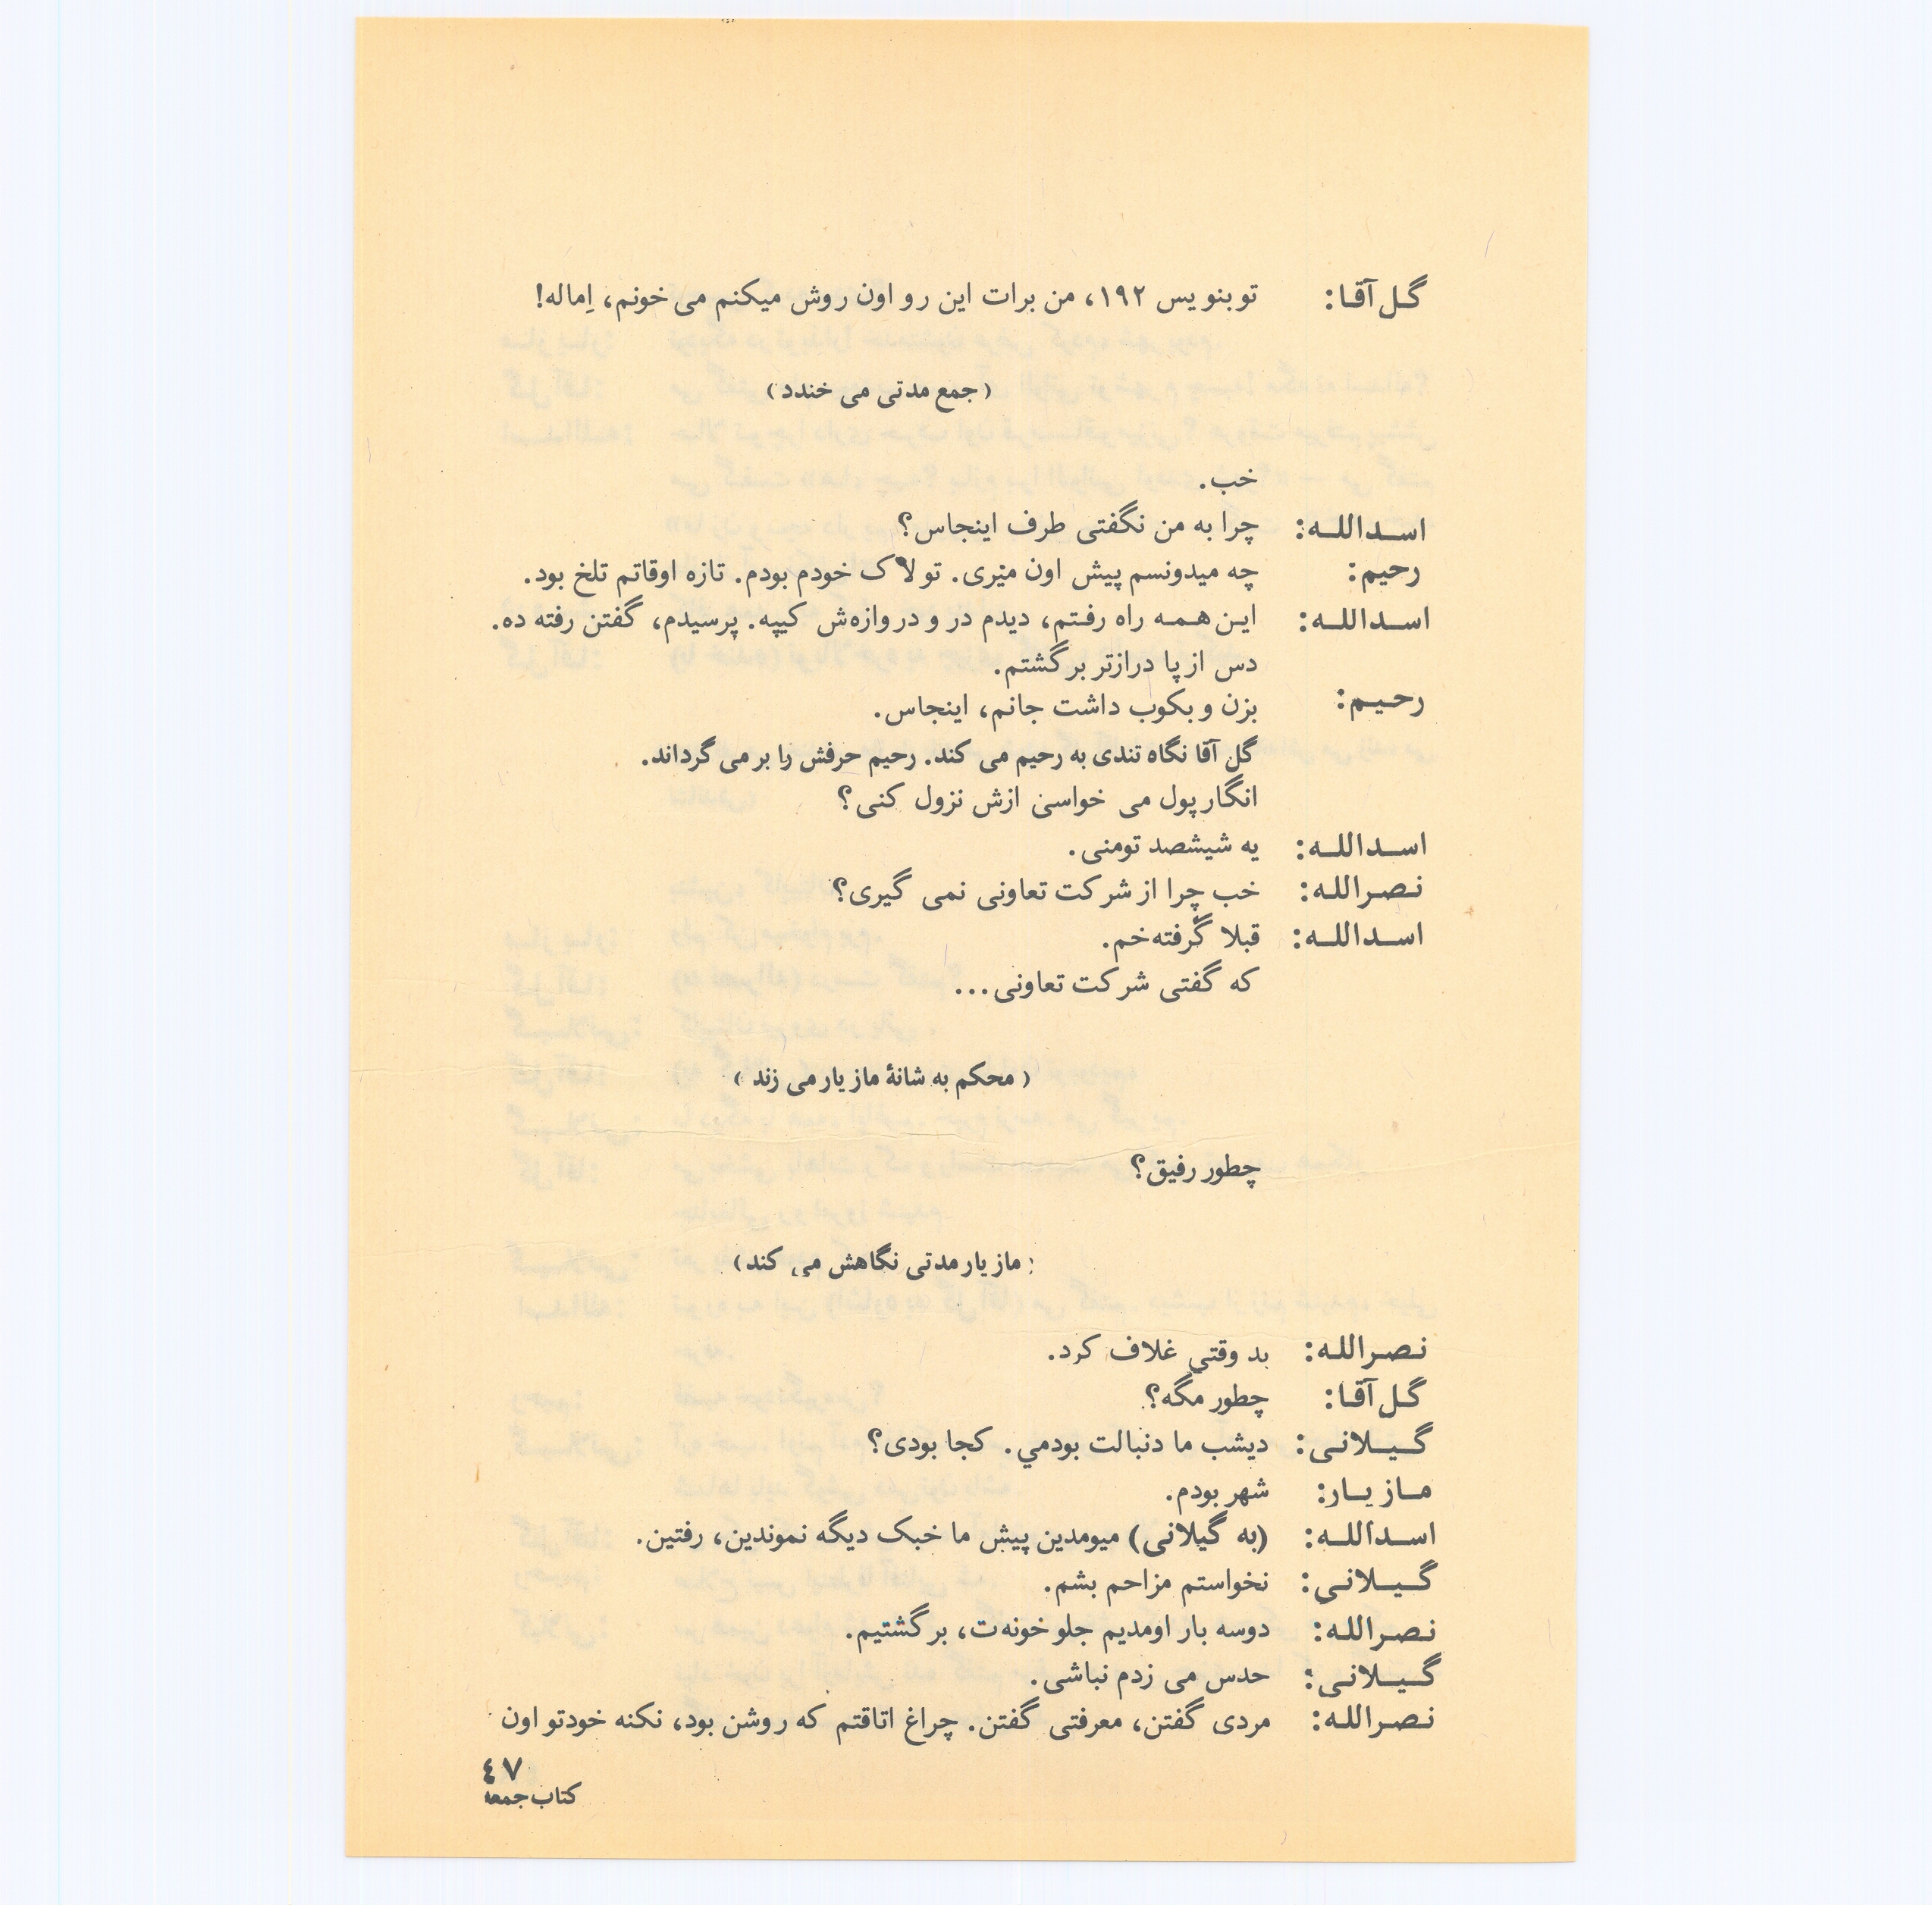 گل‌آقا: تو بنویس ۱۹۲، من برات این رو اون روش میکنم می خونم، اِماله!
(جمع مدتی می خندد)
خب.
اسدالله: چرا به من نگفتی طرف اینجاس؟
رحیم: چه میدونسم پیش اون میری. تو لاک خودم بودم. تازه اوقاتم تلخ بود.
اسدالله: این همه راه رفتم، دیدم در و دروازه‌ش کیپه. پرسیدم، گفتن رفته ده.
دس از پا درازتر برگشتم.
رحیم: بزن و بکوب داشت جانم، اینجاس.
گل آقا نگاه تندی به رحیم می کند. رحیم حرفش را بر می گرداند.
انگار پول می خواسی ازش نزول کنی؟
اسدالله: یه شیشصد تومنی.
نصرالله: خب چرا از شرکت تعاونی نمی گیری؟
اسدالله: قبلا گرفته‌خم.
که گفتی شرکت تعاونی...
(محکم به شانهٔ مازیار می زند)
چطور رفیق؟
(مازیار مدتی نگاهش می کند)
نصرالله: بد وقتی غلاف کرد.
گل‌آقا: چطور مگه؟
گیلانی: دیشب ما دنبالت بودمي. کجا بودی؟
مازیار: شهر بودم.
اسدالله: (به گیلانی) میومدین پیش ما خبک دیگه نموندین، رفتین.
گیلانی: نخواستم مزاحم بشم.
نصرالله: دوسه بار اومدیم جلو خونه‌ت، برگشتیم.
گیلانی: حدس می زدم نباشی.
نصرالله: مردی گفتن، معرفتی گفتن. چراغ اتاقتم که روشن بود، نکنه خودتو اون
۴۷
کتاب جمعه